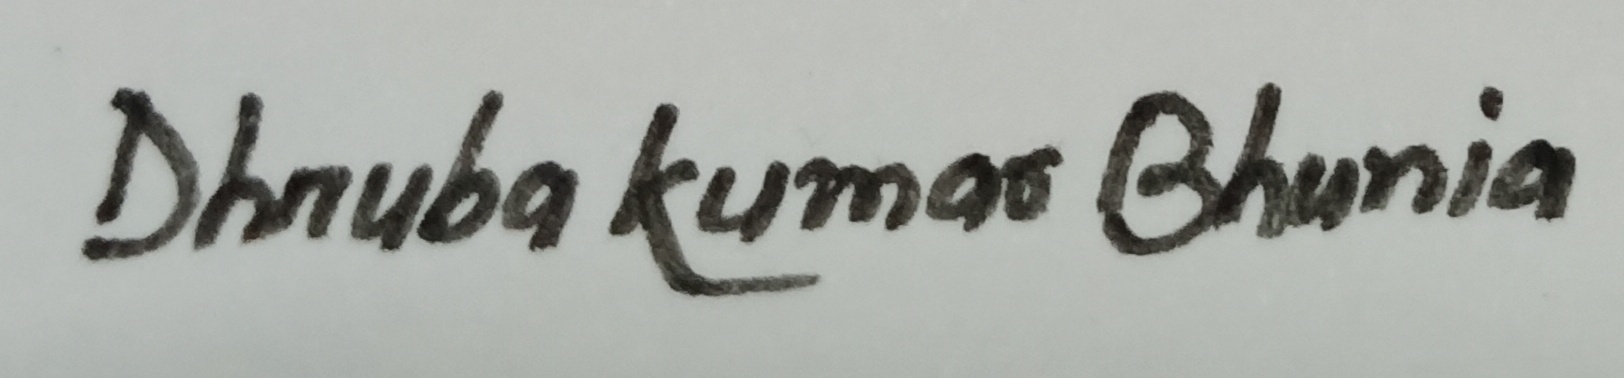 Dhruba kumar Bhunia